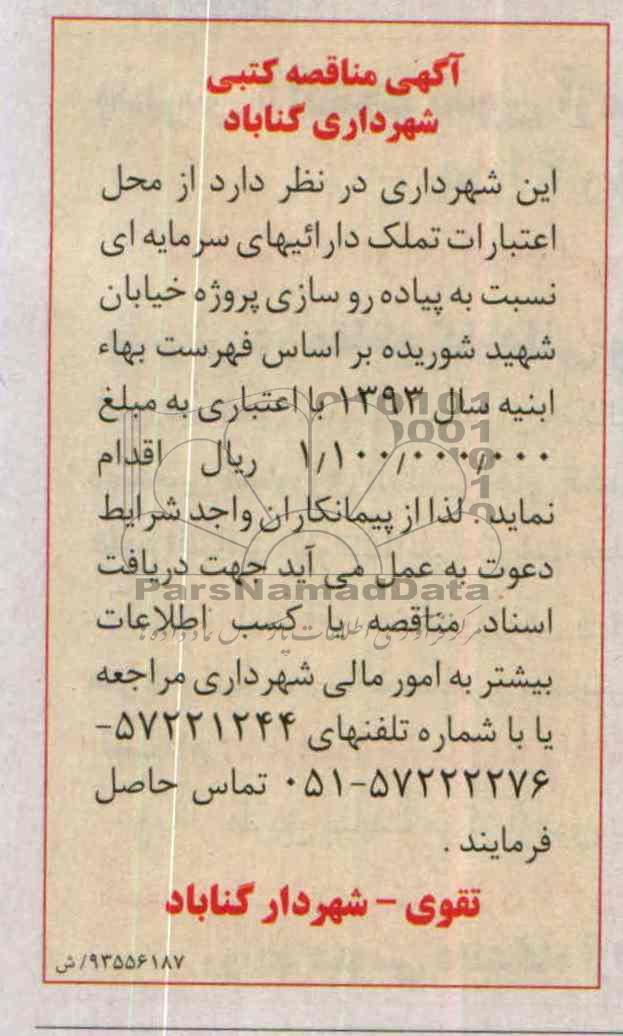 آگهی مناقصه کتبی
شهرداری گناباد
این شهرداری در نظر دارد از محل
اعتبارات تملک دارائیهای سرمایه ای
نسبت به پیاده رو سازی پروژه خیابان
شهید شوریده بر اساس فهرست بهاء
ابنیه سال ۱۳۹۳ با اعتباری به مبلغ
۱/۱۰۰/۰۰۰/۰۰۰ ریال اقدام
نماید . لذا از پیمانکاران واجد شرایط
دعوت به عمل می آید جهت دریافت
ParsNamadData
اسناد مناقصه یا کسب اطلاعات
بیشتر به امور مالی شهرداری مراجعه
یا با شماره تلفنهای ۵۷۲۲۱۲۴۴-
۰۵۱-۵۷۲۲۲۲۷۶ تماس حاصل
فرمایند .
تقوی - شهردار گناباد
۹۳۵۵۶۱۸۷/ش